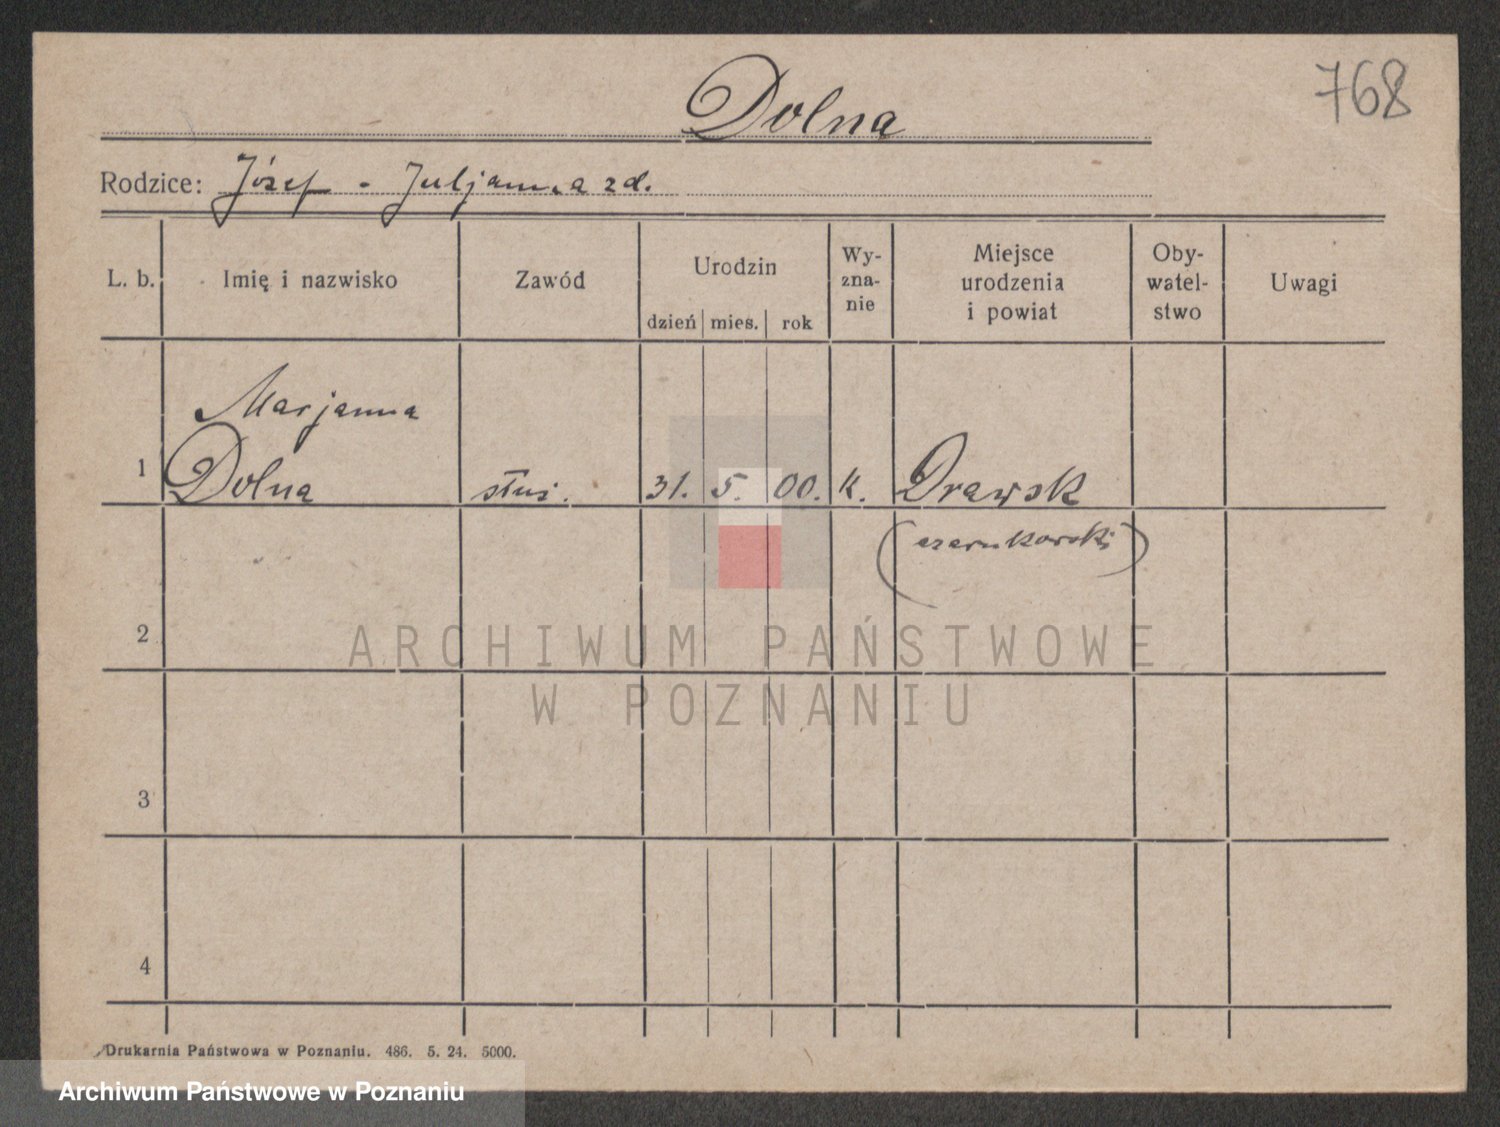 768
Dolna
Rodzice: Józef - Juljanna zd.
L. b. Imię i nazwisko Zawód Urodzin dzień mies. rok Wy-zna-nie Miejsce urodzenia i powiat Oby-watel-stwo Uwagi
Marjanna
1 Dolna służ. 31. 5. 00. k. Drawsk
(czarnkowski)
2
ARCHIWUM PAŃSTWOWE
W POZNANIU
3
4
Drukarnia Państwowa w Poznaniu. 486. 5. 24. 5000.
Archiwum Państwowe w Poznaniu